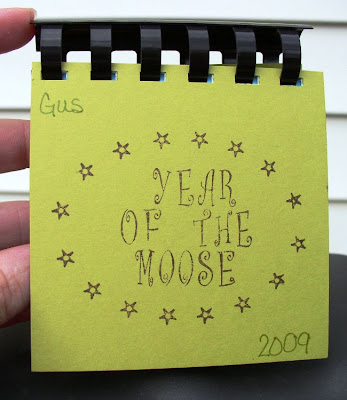 Gus
YEAR
OF THE
MOOSE
2009